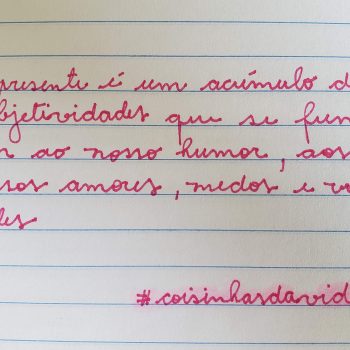 presente é um acúmulo d
bjetividades que se fun
ao nosso humor, aos
sos amores, medos e v
des
#coisinhasdavid